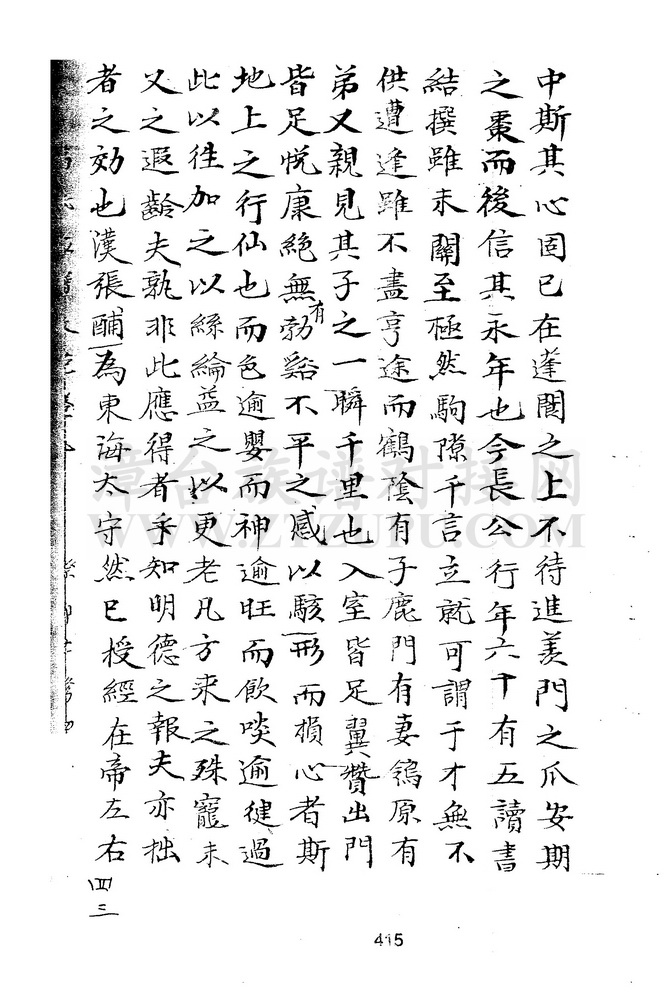 中斯其心固已在蓬閬之上不待進羨門之爪安期
之棗而後信其永年也今長公行年六十有五讀書
結撰雖未關至極然駒隙千言立就可謂于才無不
供遭逢雖不盡亨途而鶴陰有子鹿門有妻鴒原有
弟又親見其子之一瞬千里也入室皆足翼贊出門
皆足悅康絕無有勃谿不平之感以駭形而損心者斯
地上之行仙也而色逾嬰而神逾旺而飲啖逾健過
此以徃加之以絲綸益之以更老凡方来之殊寵未
乂之遐齡夫孰非此應得者乎知明德之報夫亦拙
者之効也漢張酺為東海太守然已授經在帝左右
四三
415
漳台族谱对接网
WWW.ZTZUPU.COM